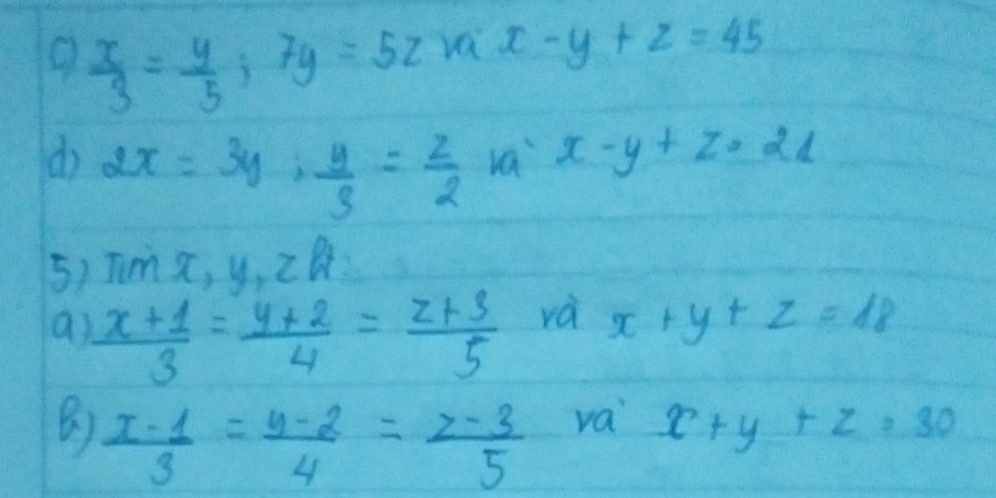 c) x/3 = y/5 ; 7y = 5z và x - y + z = 45
d) 2x = 3y , y/3 = z/2 và x - y + z = 21
5) Tìm x, y, z
a) x+1/3 = y+2/4 = z+3/5 và x + y + z = 18
b) x-1/3 = y-2/4 = z-3/5 và x + y + z = 30